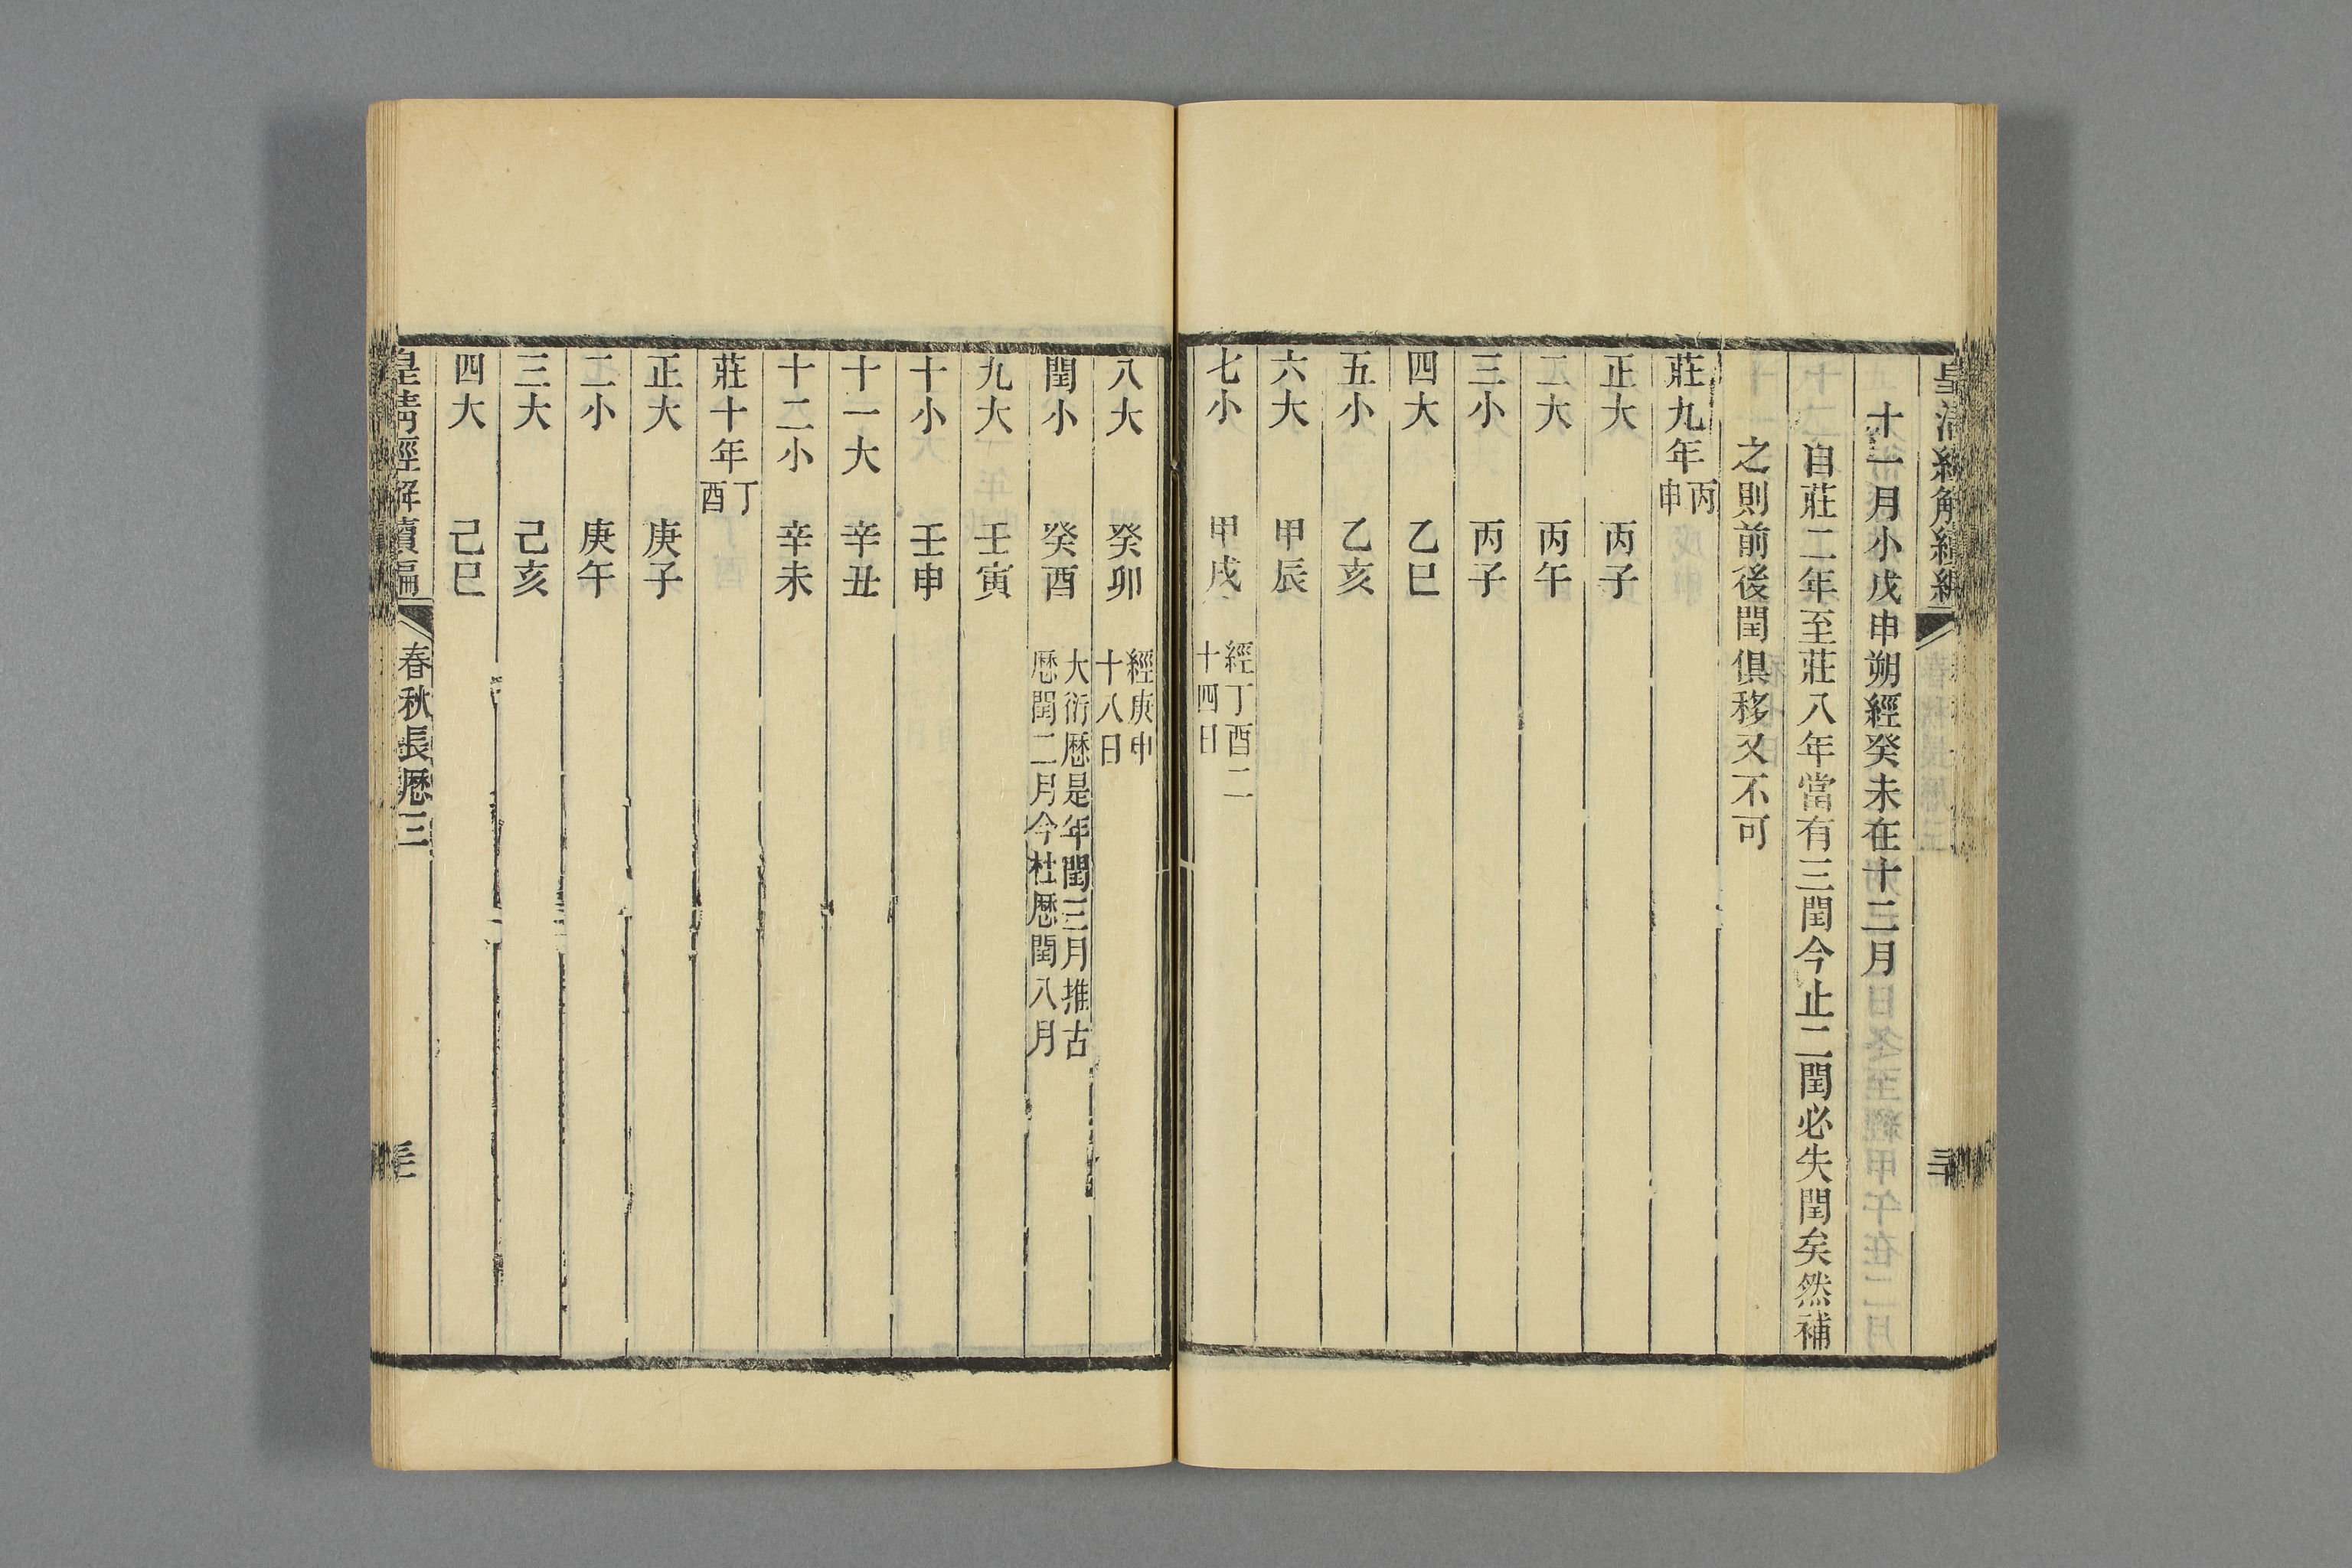 十一月小戊申朔經癸未在十二月
自莊二年至莊八年當有三閏今止二閏必失閏矣然補
之則前後閏俱移又不可
莊九年丙申
正大 丙子
二大 丙午
三小 丙子
四大 乙巳
五小 乙亥
六大 甲辰
七小 甲戌 經丁酉二十四日
八大 癸卯 經庚申十八日
閏小 癸酉 大衍歷是年閏三月推古歷閏二月今杜歷閏八月
九大 壬寅
十小 壬申
十一大 辛丑
十二小 辛未
莊十年丁酉
正大 庚子
二小 庚午
三大 己亥
四大 己巳
皇清經解續編 春秋長歷三